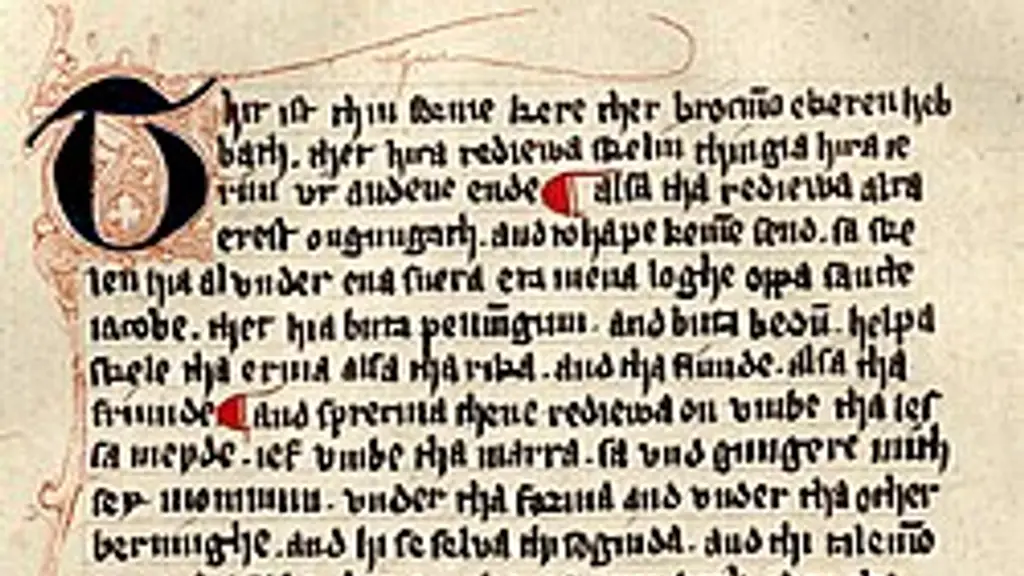 Thit ist thiu forme kere ther brocmēn ekeren heb
bath. ther hira rediewa skelin thingia hira te
rmin vr andene ende ¶ alsa tha rediewa alra
erest ongungath. and to hape kemē send. sa ske
len hia al vnder ena suera en mena loghe oppa sancte
iacobe. ther hia buta peningum. and buta bedū. helpa
skele tha erma alsa tha rika. and tha fiunde. alsa tha
friunde ¶ and thene rediewa on vmbe tha les
sa meyde. ief vmbe tha marra. sa vnd gungere mith
sex monnum. vnder tha and vnder tha other
and hi se selva thi sogunda. and thi talemō